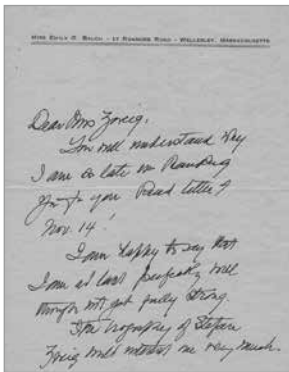 MISS EMILY G. BALCH - 17 ROANOKE ROAD - WELLESLEY, MASSACHUSETTS
Dear Mrs Zweig,
You will understand why
I am so late in thanking
you for your kind letter of
Nov. 14!
I am happy to say that
I am at last perfectly well
though not yet fully strong.
The biography of Stefan
Zweig will interest me very much.